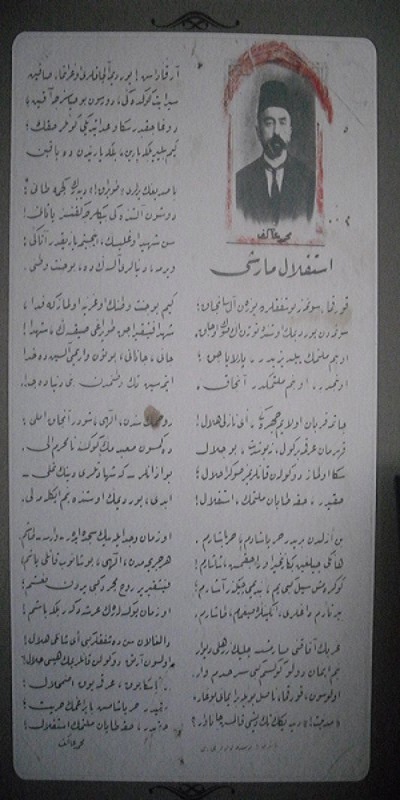 محمد عاكف
استقلال مارشى
قورقما، سونمز بو شفقلرده يوزن آل سانجاق؛
سونمه‌دن يورديمك اوستنده توتن اك صوك اوجاق.
او بنم ملتمك ييلديزيدر، پارلاياجق؛
او بنمدر، او بنم ملتمكدر آنجاق.
چاتما، قربان اولايم، چهره‌كى اى نازلى هلال!
قهرمان عرقمه بر كول.. نه بو شدت، بو جلال؟
سكا اولماز دوكولن قانلريمز صوكرا حلال؛
حقيدر، حقه طاپان ملتمك، استقلال!
بن ازلدن بريدر حر ياشادم، حر ياشارم.
هانكى چيلغين بكا زنجير اوراجقمش؟ شاشارم!
كوكره‌مش سيل كبى يم، بنديمى چيكنر، آشارم؛
ييرتارم داغلرى، انكينلره صيغمام، طاشارم.
غربك آفاقنى صارمشسه چليك زرهلى ديوار،
بنم ايمان دولو كوكسم كبى سرحدم وار.
اولوسون، قورقما! ناصل بويله بر ايمانى بوغار،
«مدنيت!» ديديكك تك ديشى قالمش جاناوار؟
آرقاداش! يورديمه آلچاقلرى اوغراتما، صاقين؛
سپر ايت كوكده‌كى، دورسون بو حياسزجه آقين؛
دوغاجقدر سكا وعد ايتديكى كونلر حقك؛
كيم بيلير، بلكه يارين، بلكه ياريندن ده ياقين.
باصديغك يرلرى «طوپراق!» دييه‌رك كچمه، طانى!
دوشون آلتنده‌كى بيكلرجه كفنسز ياتانى!
سن شهيد اوغليسك، اينجيتمه، يازيقدر، آتاكى؛
ويرمه، دنيالرى آلسه‌ك ده، بو جنت وطنى.
كيم بو جنت وطنك اوغرينه اولماز كه فدا؟
شهدا فيشقيراجق طوپراغى صيقسه‌ك، شهدا!
جانى، جانانى، بوتون واريمى آلسين ده خدا،
ايتمه‌سين تك وطنمدن بنى دنياده جدا!
روحمك سندن، الهى، شودر آنجاق املى؛
دكمه‌سين معبدمك كوكسنه نامحرم الى.
بو اذانلر -كه شهادتلرى دينك تملى-
ابدى، يورديمك اوستنده بنم ايكله‌ملى.
او زمان وجد ايله بيك سجده ايدر -وارسه- طاشم،
هر جريحه‌مدن، الهى، بوشانوب قانلى ياشم،
فيشقيرير روح مجرد كبى يردن نعشم؛
او زمان يوكسه‌له‌رك عرشه دكر، بلكه، باشم!
دالغالان سن ده شفقلر كبى اى شانلى هلال!
اولسون آرتق دوكولن قانلريمك هپسى حلال.
ابدياً سكا يوق، عرقمه يوق اضمحلال؛
حقيدر، حر ياشامش، بايراغمك حريت؛
حقيدر، حقه طاپان ملتمك استقلال!
محمد عاكف